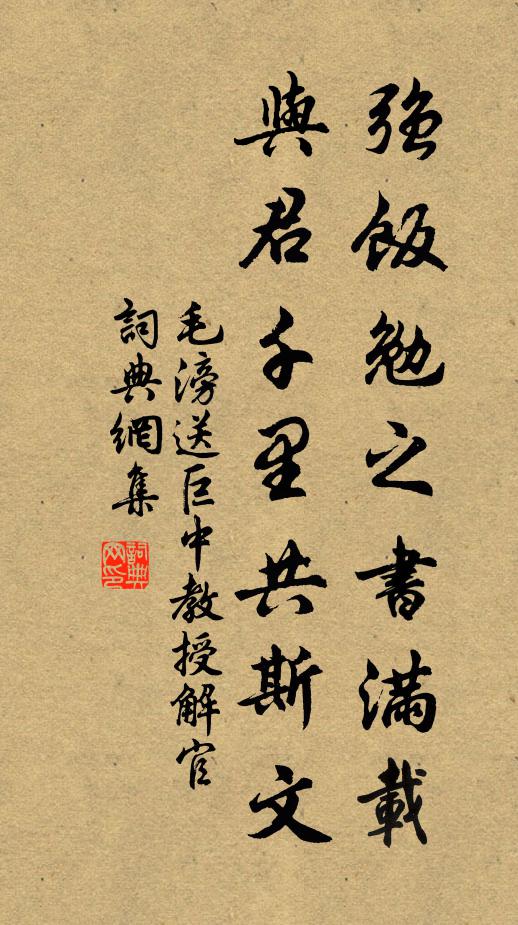 強飯勉之書滿載
與君千里共斯文
毛滂送巨中教授解官
詞典網集
詞典網印